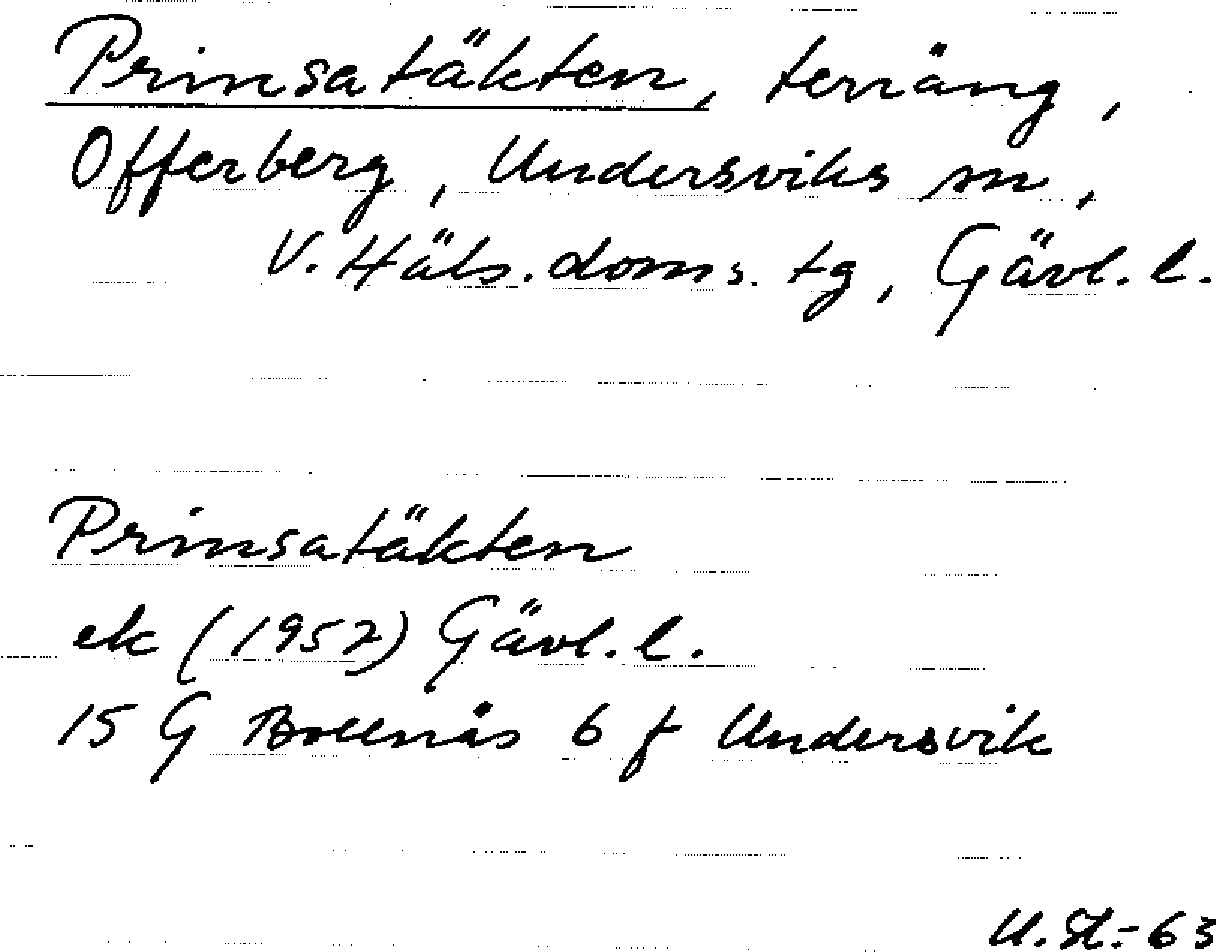 Prinsatäkten, terräng,
Offerberg, Undersviks sn,
V. Häls. doms. tg, Gävl. l.
Prinsatäkten
ek (1957) Gävl. l.
15 G Bollnäs 6 f Undersvik
U. St. -63